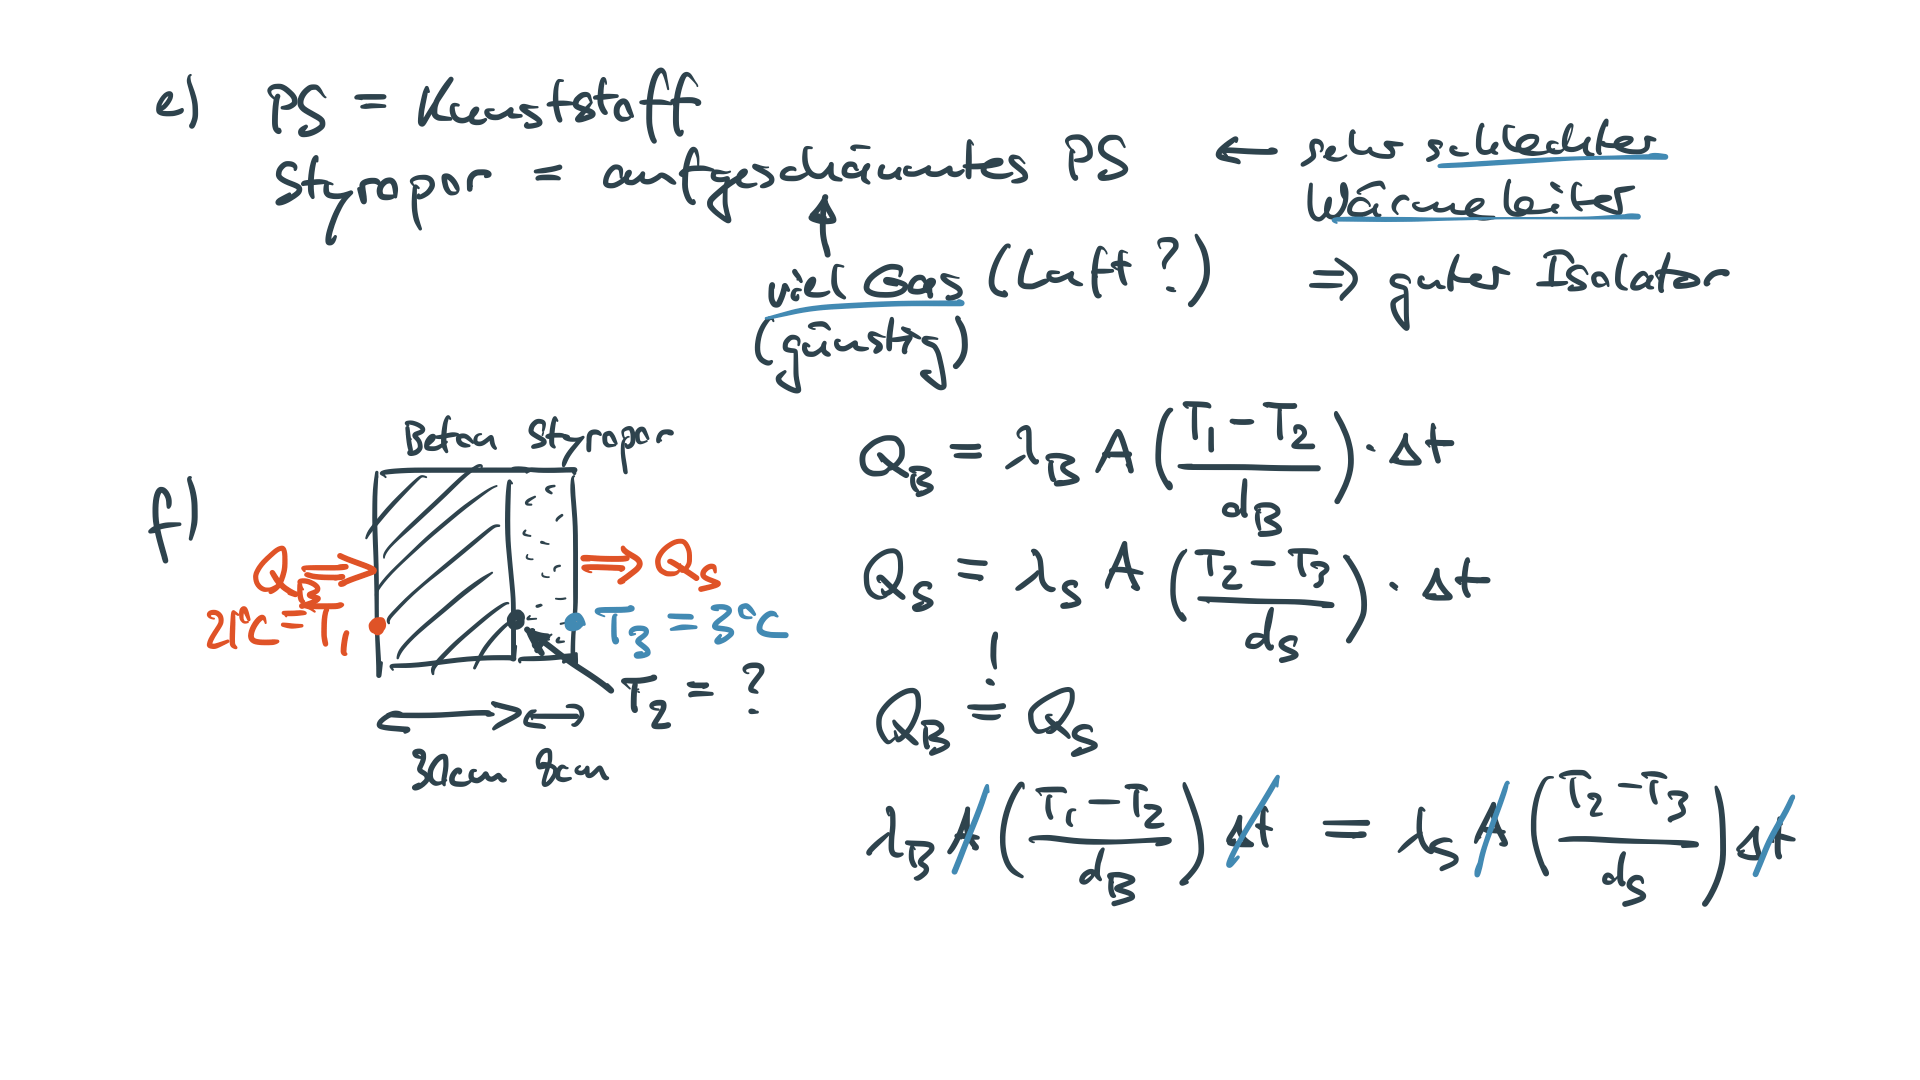 e) PS = Kunststoff
Styropor = aufgeschäumtes PS ← sehr schlechter
Wärmeleiter
viel Gas (Luft?) ⇒ guter Isolator
(günstig)
f)
Beton Styropor
Q_B ⇒ ⇒ Q_S
21°C = T₁ T₃ = 3°C
T₂ = ?
30cm 8cm
Q_B = λ_B A (T₁ - T₂ / d_B) · Δt
Q_S = λ_S A (T₂ - T₃ / d_S) · Δt
!
Q_B = Q_S
λ_B A (T₁ - T₂ / d_B) Δt = λ_S A (T₂ - T₃ / d_S) Δt